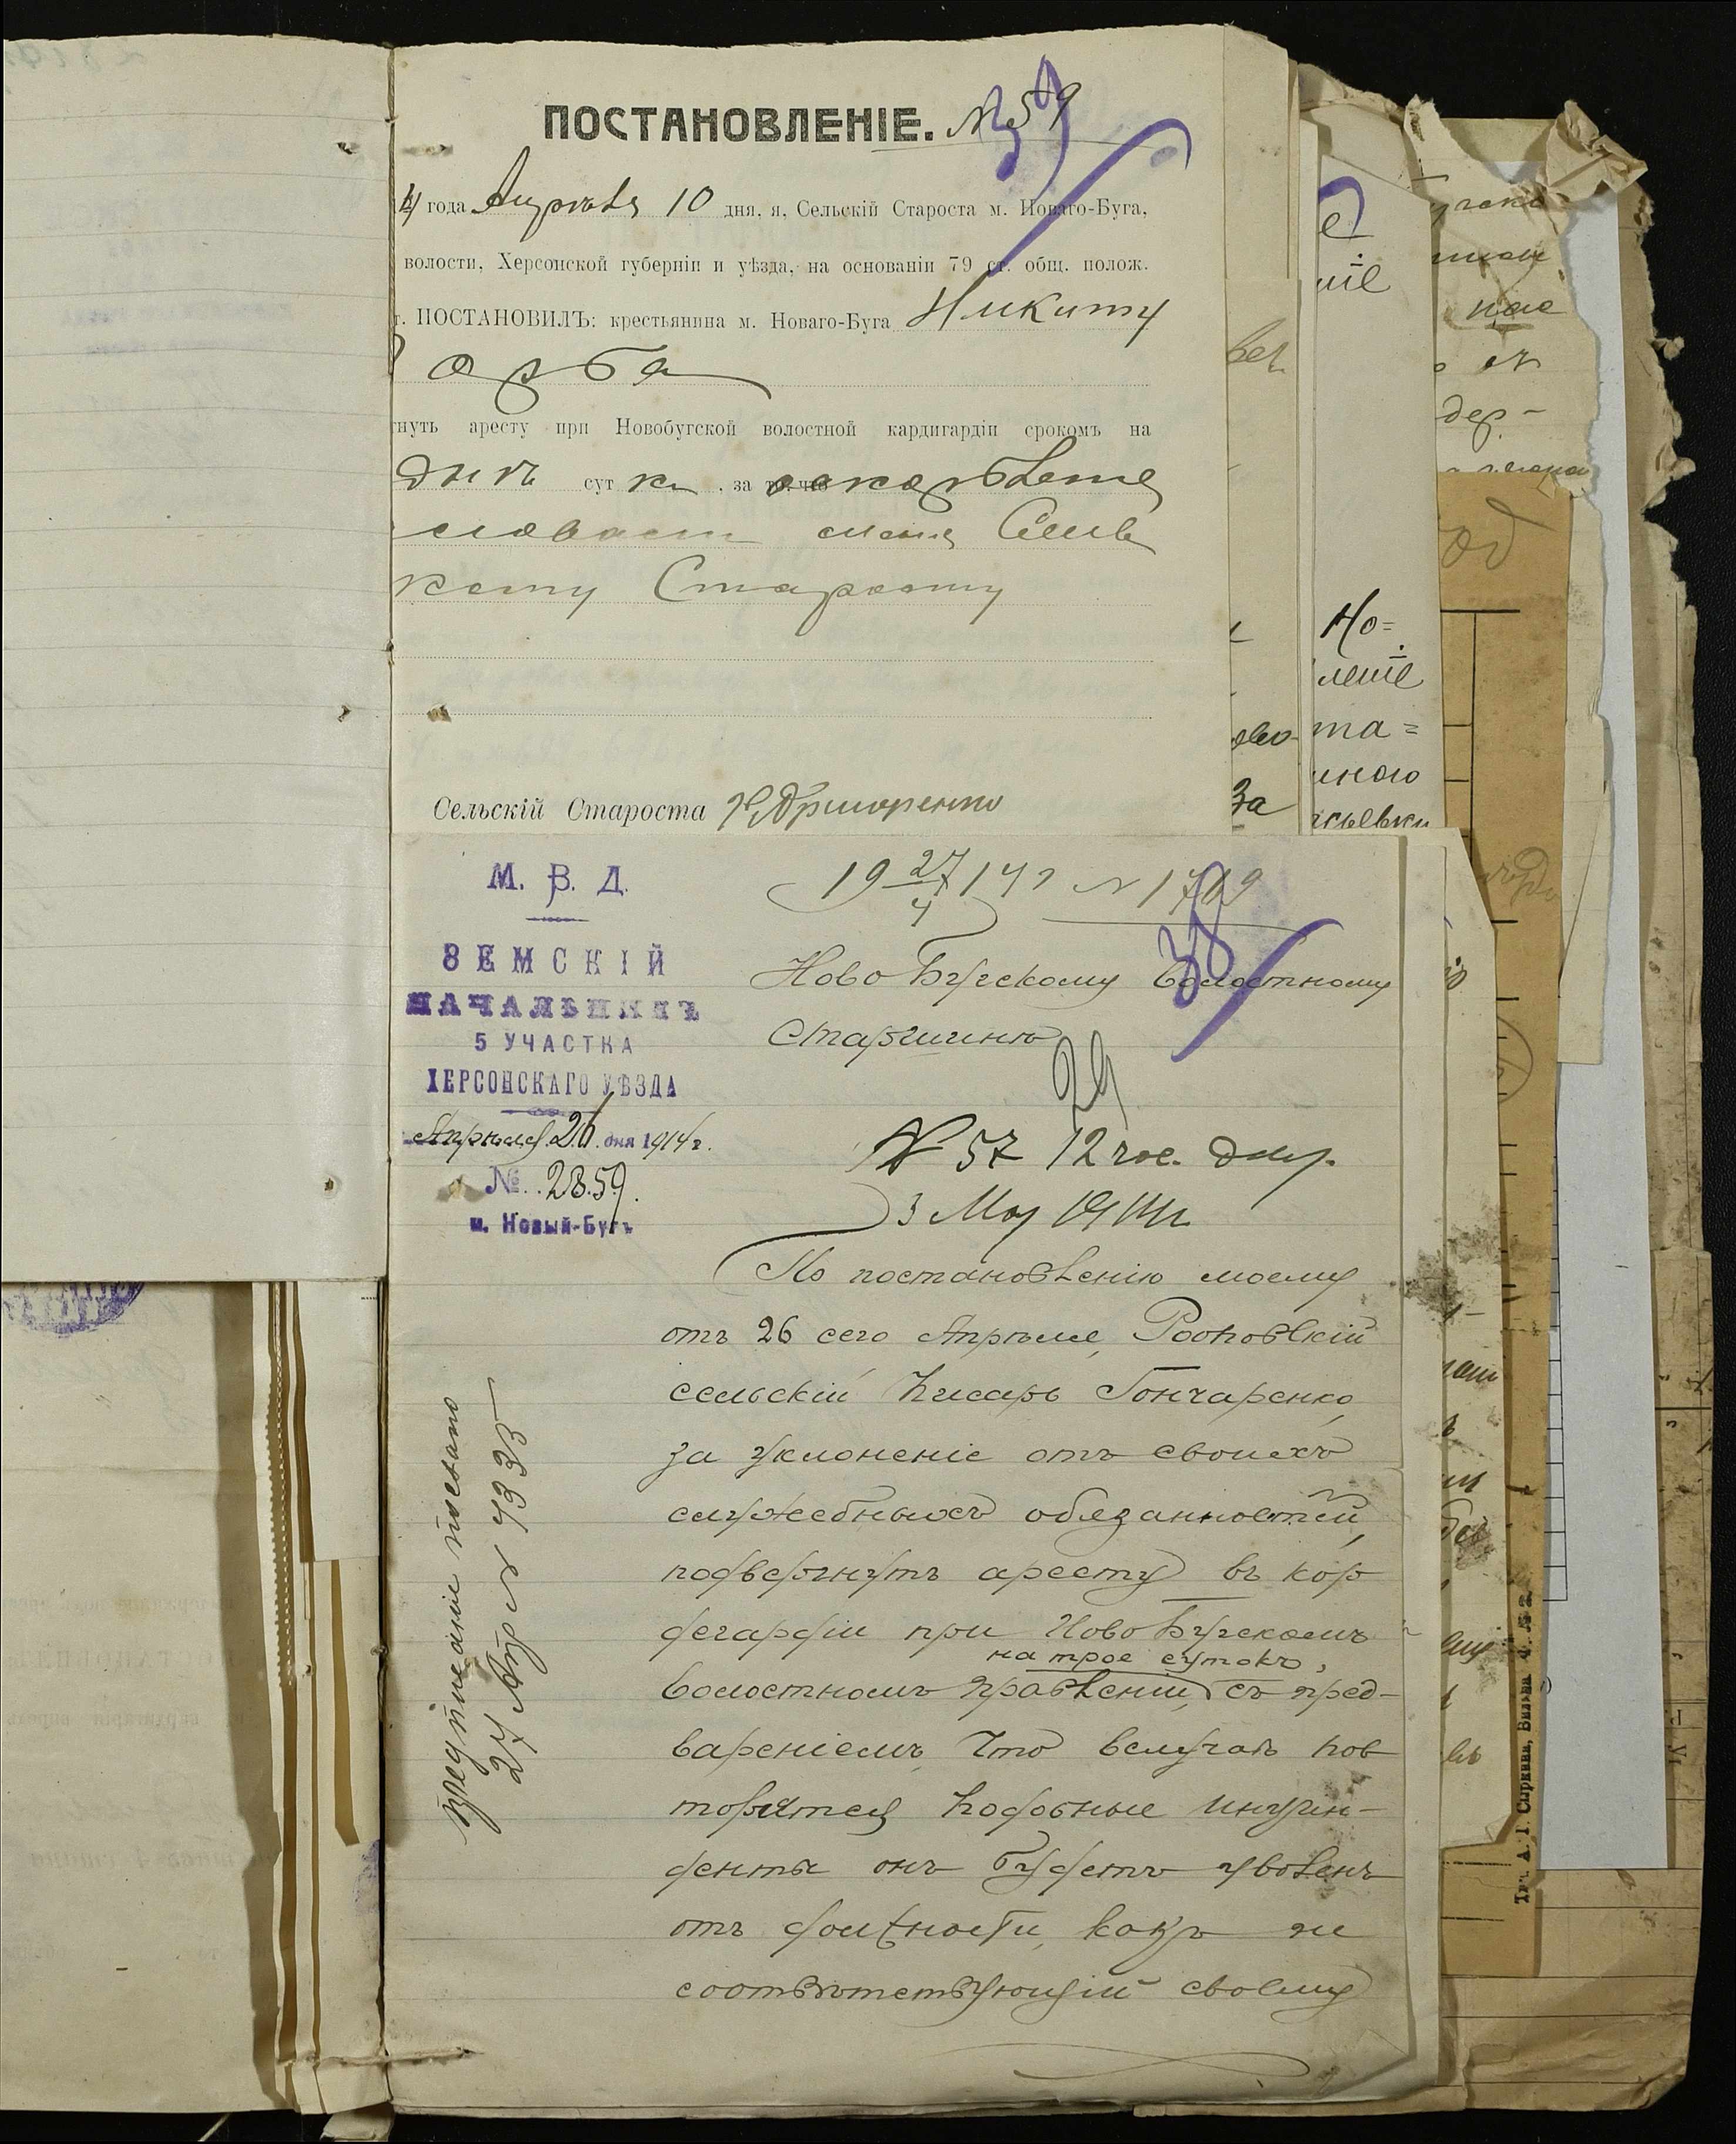 ПОСТАНОВЛЕНІЕ. № 59
39
4 года Апрѣля 10 дня, я, Сельскій Староста м. Новаго-Буга,
волости, Херсонской губерніи и уѣзда, на основаніи 79 ст. общ. полож.
г. ПОСТАНОВИЛЪ: крестьянина м. Новаго-Буга Никиту
орба
гнуть аресту при Новобугской волостной кардигардіи срокомъ на
динъ сутки, за то, что оскорбленіе
словами меня Сель
кому Старосту
Сельскій Староста
М. В. Д.
ЗЕМСКІЙ
НАЧАЛЬНИКЪ
5 УЧАСТКА
ХЕРСОНСКАГО УѢЗДА
Апрѣля 26 дня 1914 г.
№ 2859.
м. Новый-Бугъ
19 27/4 14 г № 1719
38
Ново Бугскому Волостному
Старшинѣ
29
№ 57 12 час. дня.
3 Мая 1914 г.
По постановленію моему
отъ 26 сего Апрѣля,
сельскій писарь Гончаренко,
за уклоненіе отъ своихъ
служебныхъ обязанностей,
подвергнутъ аресту въ кор
дегардіи при Ново Бугскомъ
на трое сутокъ,
Волостномъ Правленіи, съ пред-
вареніемъ, что вслучаѣ пов
торятся подобные инцин-
денты онъ будетъ уволенъ
отъ должности, какъ не
соотвѣтствующій своему
предписаніе послано
27 Апр № 4335
Но=
леніе
та=
За
дер-